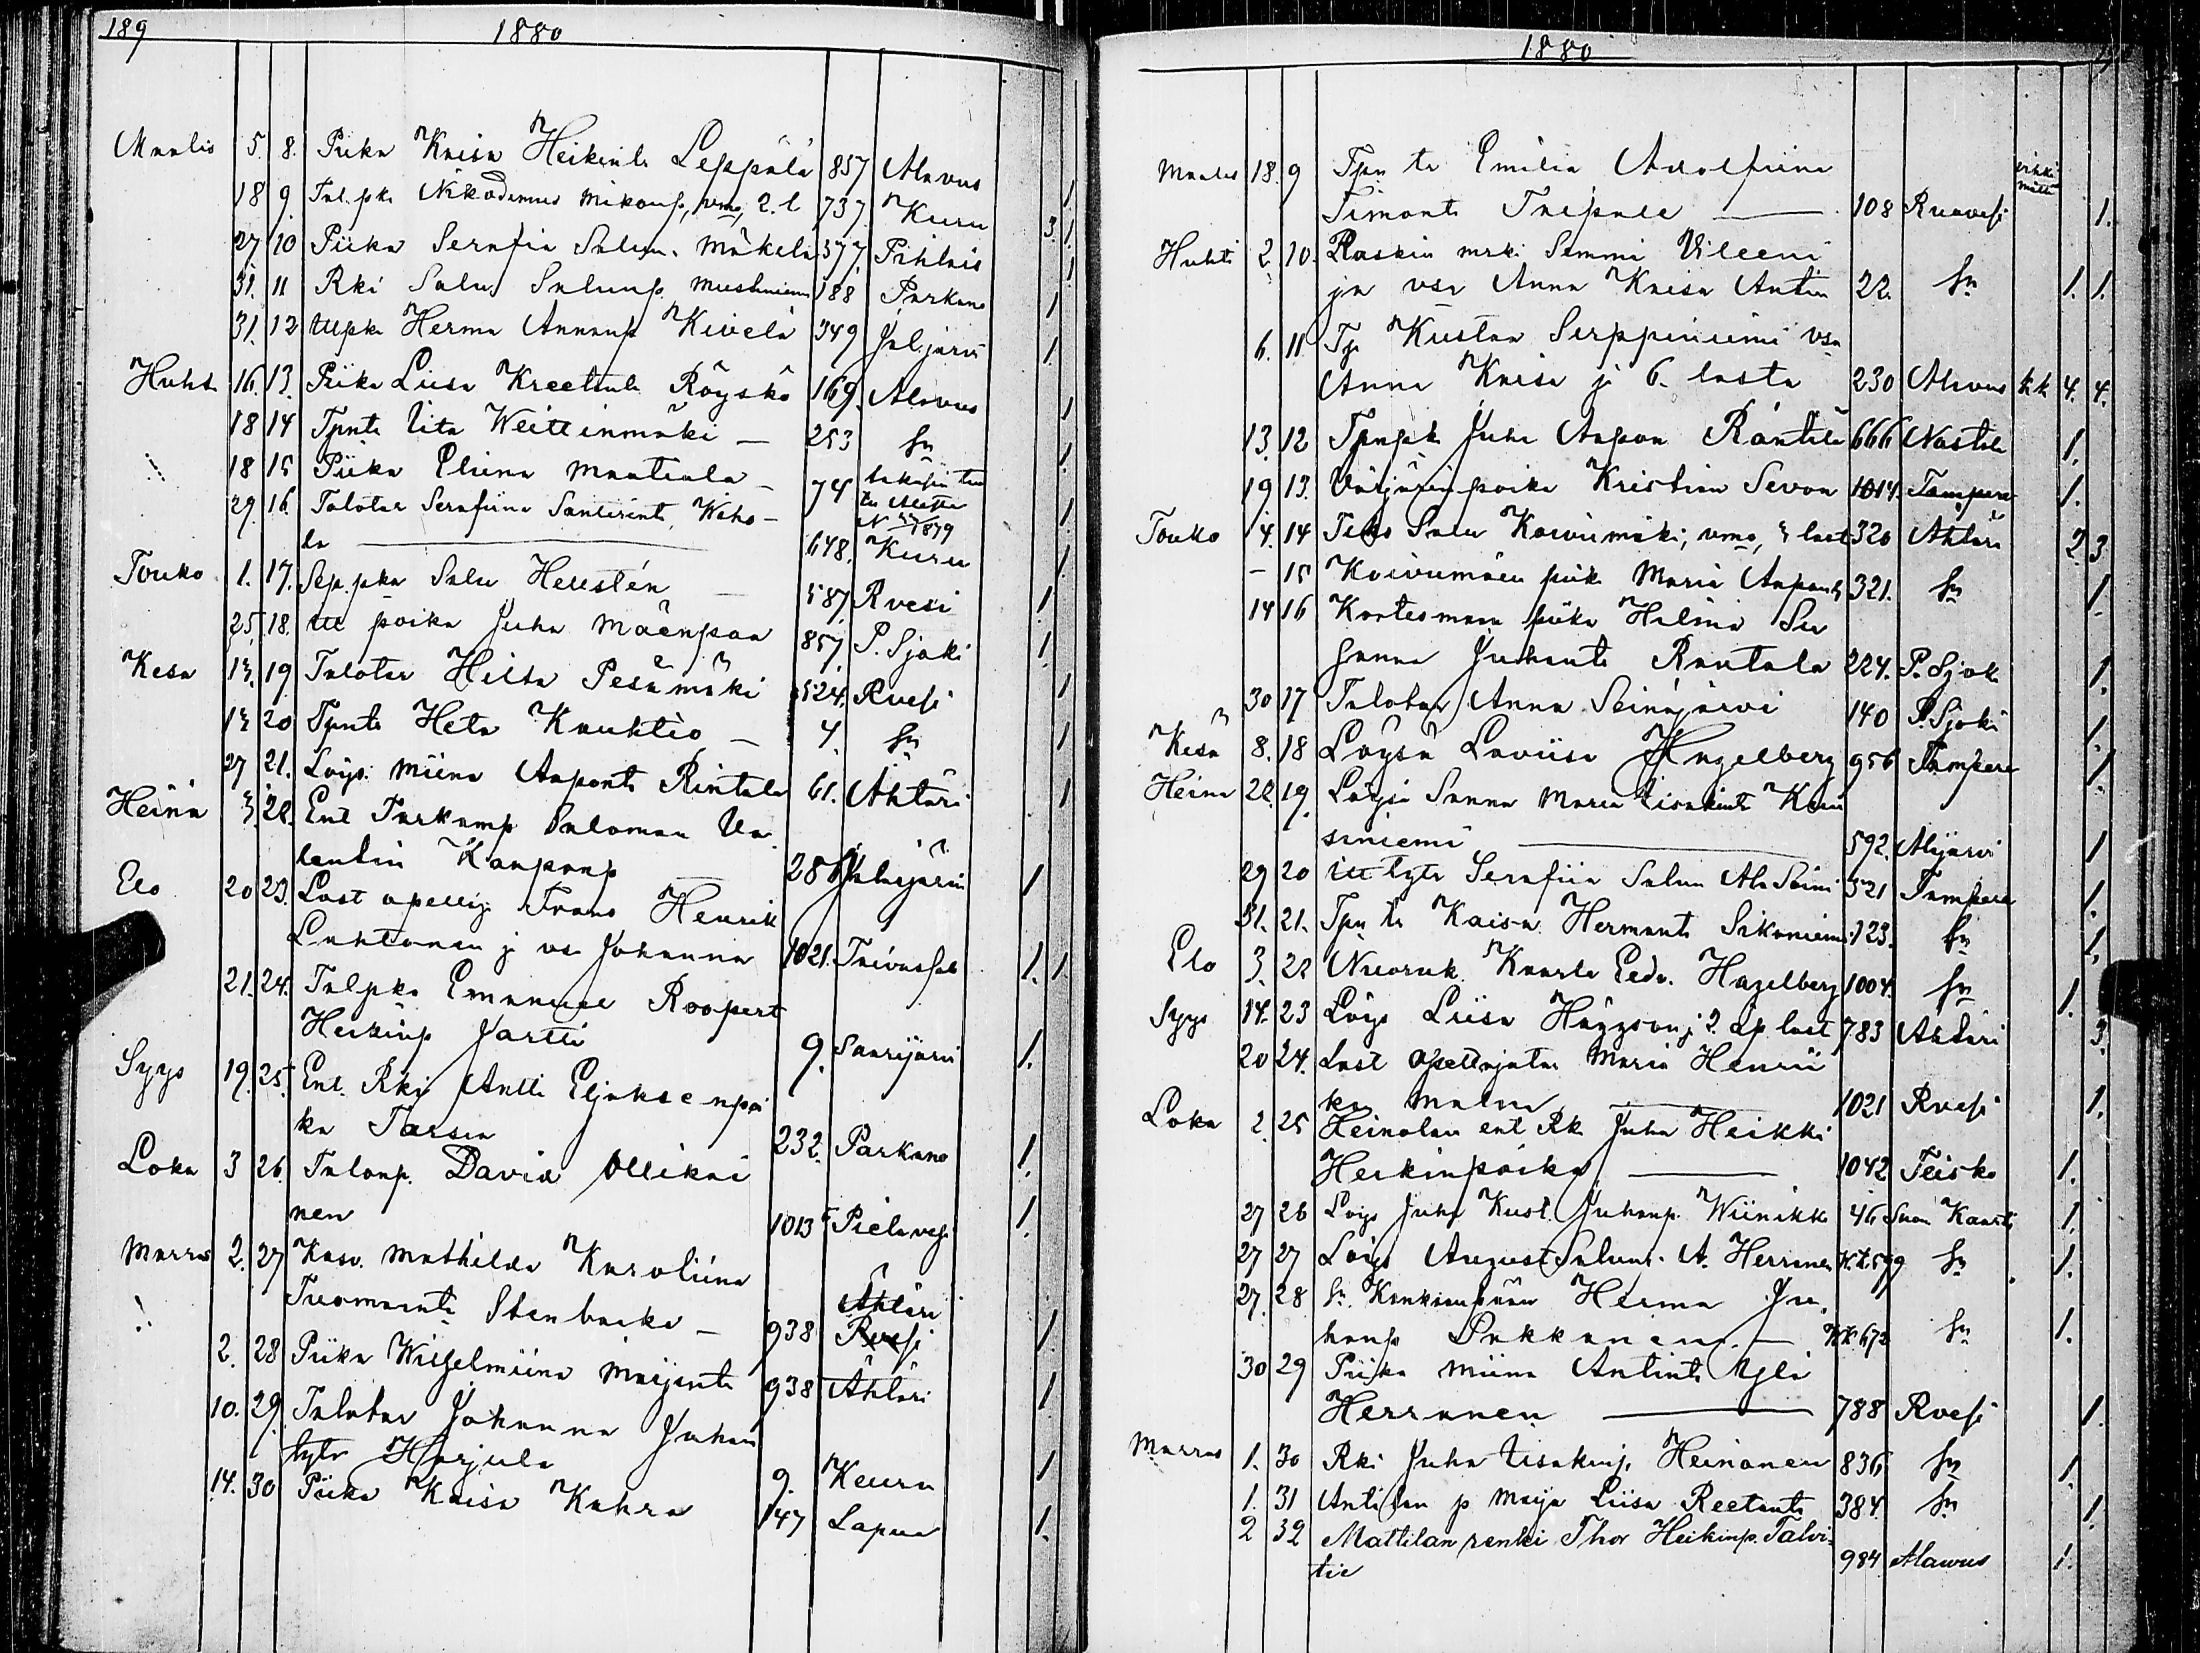 189
1880
Maalis 5. 8. Piika Kaisa Heikint. Leppälä 857 Alavus 1
18 9. Tal. pka Nikodemus Mikonp., vmo, 2. l 737 Kuru 3. 1.
27 10 Piika Serafia Salom. Mäkelä 377 Pihlais 1
31. 11 Rki Salu Salunp. 188 Parkano 1
31. 12 Herma Annanp Kivelä 349 Jal.järvi 1.
Huhti 16. 13. Piika Liisa Kreetant. Röyskö 169. Alavus 1
18 14 Tpnte Iita Weitiinmäki — 253 sn 1.
18 15 Piika Eliina Mantiala — 74
29. 16. Talotar Serafiina Santerint. Waho- 1
la — 648. Kuru 1.
Touko 1. 17. Sep. pka Salu Hellstén — 587 Rvesi 1.
25. 18. itt poika Juha Mäenpää 857. P. Sjoki 1.
Kesä 13. 19 Talotar Hilta Pesämäki 524. Rvesi 1
13 20 Tpnte Heta Kauhtio — 4. sn 1
27 21. Löys. Miina Aapont. Rintala 61. Ähtäri 1
Heinä 3. 22. Ent Salomon Va
lentin Kaaponp — 288 Jalasjärvi 1
Elo 20 23. Last opettaja Frans Henrik
Lahtonen j va Johanna 1021. Taivassalo 1. 1
21. 24. Talpka Emanuel Roopert
Heikinp Jartti 9. Saarijärvi 1.
Syys 19. 25. Ent. Rki Antti Eljaksenpoi
ka Tarsia 232. Parkano 1.
Loka 3 26. Talonp. David Ollikai
nen 1013 Pielavesi 1.
Marras 2. 27 Kasv. Mathilda Karoliina
Tuomaant. Stenbacka — 938 Ähtäri Rvesi 1.
2. 28 Piika Wilhelmiina Maijant. 938 Ähtäri 1
10. 29. Talotar Johanna Juhan
tytr Harjula 9. Keuru 1
14. 30 Piika Kaisa Kahra 147 Lapua 1.
1880
Maalis 18. 9 Tpn tr Emilia Adolfiina
Simont. Taipale — 108 Ruovesi 1.
Huhti 2. 10. Raskin mrki Semmi Vileeni
ja vsa Anna Kaisa Antin 22. sn 1. 1.
6. 11. Tp Kustaa Serppiniemi vsa
Anna Kaisa j 6. lasta 230 Alavus k.k 4. 4.
13. 12 Tpnpk Juha Aapon Rantala 666 Nastola 1.
19 13. Värjärinpoika Kristian Sevon 1014. Tampere 1.
Touko 4. 14 Salu Koivumäki, vmo, 3 last 320 Ähtäri 2. 3
— 15 Koivumäen piik. Maria Aapont. 321. sn 1.
14 16 Kortesmaa piika Helena Su
sanna Juhant. Rantala 224. P. Sjok. 1.
30 17 Talotar Anna Seinäjärvi 140 P. Sjoki 1.
Kesä 8. 18 Löysä Loviisa Hagelberg 956 Tampere 1.
Heinä 22. 19. Löysä Sanna Maria Iisakint. Kau
siniemi — 592. Alajärvi 1
29 20 itt tytr Serafiia Salun Ala Soini 521 Tampere 1.
31. 21. Tpn tr Kaisa Hermant. Sikaniemi 123. sn 1.
Elo 3. 22 Nuoruk. Kaarle Eedv. Hagelberg 1004. sn 1.
Syys 14. 23 Löys Liisa Häggson j 2. äp last 783 Ähtäri 3.
20 24. Last opettajatar Maria Henrii
ka Malm — 1021 Rvesi 1.
Loka 2. 25 Heinolan ent Rk Juha Heikki
Heikinpoika — 1042 Teisko 1.
27 26 Löys Juha Kust. Juhanp. Wiinikka 46 1.
27 27 Löys August Salum. A. Herranen K.k.599 sn 1.
27. 28 sn. Herma Ju
hanp Pakkanen — Kk 672 sn 1.
30 29 Piika Miina Antint. Yli
Herranen — 788 Rvesi 1.
Marras 1. 30 Rki Juha Iisakinp. Heinonen 836 sn 1.
1. 31 Antilan p Maija Liisa Reetant. 384. sn 1.
2 32 Mattilan renki Thor Heikinp. Talvi-
tie 984 Alawus 1.